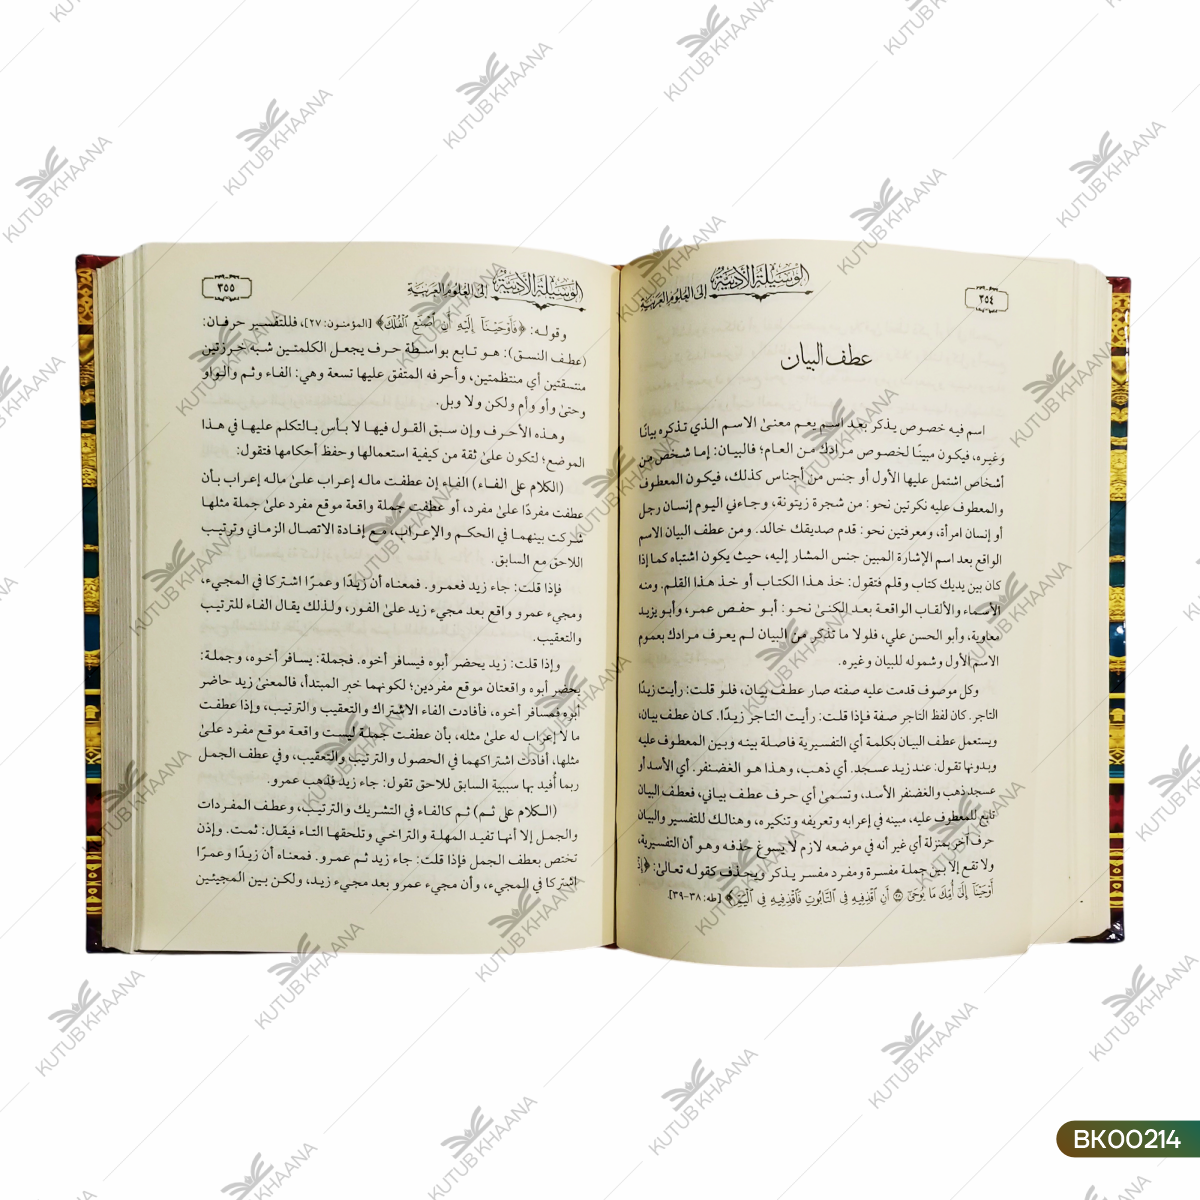 ٣٥٤
الوسيلة الأدبية إلى العلوم العربية
عطف البيان
اسم فيه خصوص يذكر بعد اسم يعم معنىٰ الاسم الذي تذكره بيانًا
وغيره، فيكون مبينًا لخصوص مرادك من العام؛ فالبيان: إما شخص من
أشخاص اشتمل عليها الأول أو جنس من أجناس كذلك، فيكون المعطوف
والمعطوف عليه نكرتين نحو: من شجرة زيتونة، وجاءني اليوم إنسان رجل
أو إنسان امرأة، ومعرفتين نحو: قدم صديقك خالد. ومن عطف البيان الاسم
الواقع بعد اسم الإشارة المبين جنس المشار إليه، حيث يكون اشتباه كما إذا
كان بين يديك كتاب وقلم فتقول: خذ هذا الكتاب أو خذ هذا القلم. ومنه
الأسماء والألقاب الواقعة بعد الكنىٰ نحو: أبو حفص عمر، وأبو يزيد
معاوية، وأبو الحسن علي، فلولا ما تذكر من البيان لم يعرف مرادك بعموم
الاسم الأول وشموله للبيان وغيره.
وكل موصوف قدمت عليه صفته صار عطف بيان، فلو قلت: رأيت زيدًا
التاجر. كان لفظ التاجر صفة فإذا قلت: رأيت التاجر زيدًا. كان عطف بيان،
ويستعمل عطف البيان بكلمة أي التفسيرية فاصلة بينه وبين المعطوف عليه
وبدونها تقول: عند زيد عسجد. أي ذهب، وهذا هو الغضنفر. أي الأسد أو
عسجد ذهب والغضنفر الأسد، وتسمىٰ أي حرف عطف بياني، فعطف البيان
تابع للمعطوف عليه، مبينه في إعرابه وتعريفه وتنكيره، وهنالك للتفسير والبيان
حرف آخر بمنزلة أي غير أنه في موضعه لازم لا يسوغ حذفه وهو أن التفسيرية،
ولا تقع إلا بين جملة مفسرة ومفرد مفسر يذكر ويحذف كقوله تعالىٰ: ﴿إِذْ
أَوْحَيْنَآ إِلَىٰٓ أُمِّكَ مَا يُوحَىٰٓ ٣٨ أَنِ ٱقْذِفِيهِ فِى ٱلتَّابُوتِ فَٱقْذِفِيهِ فِى ٱلْيَمِّ﴾ [طه: ٣٨-٣٩].
الوسيلة الأدبية إلى العلوم العربية
٣٥٥
وقوله: ﴿فَأَوْحَيْنَآ إِلَيْهِ أَنِ ٱصْنَعِ ٱلْفُلْكَ﴾ [المؤمنون: ٢٧]، فللتفسير حرفان:
(عطف النسق): هو تابع بواسطة حرف يجعل الكلمتين شبه خرزتين
منتسقتين أي منتظمتين، وأحرفه المتفق عليها تسعة وهي: الفاء وثم والواو
وحتىٰ وأو وأم ولكن ولا وبل.
وهذه الأحرف وإن سبق القول فيها لا بأس بالتكلم عليها في هذا
الموضع؛ لتكون علىٰ ثقة من كيفية استعمالها وحفظ أحكامها فتقول:
(الكلام على الفاء) الفاء إن عطفت ماله إعراب علىٰ ماله إعراب بأن
عطفت مفردًا علىٰ مفرد، أو عطفت جملة واقعة موقع مفرد علىٰ جملة مثلها
شركت بينهما في الحكم والإعراب، مع إفادة الاتصال الزماني وترتيب
اللاحق مع السابق.
فإذا قلت: جاء زيد فعمرو. فمعناه أن زيدًا وعمرًا اشتركا في المجيء،
ومجيء عمرو واقع بعد مجيء زيد علىٰ الفور، ولذلك يقال الفاء للترتيب
والتعقيب.
وإذا قلت: زيد يحضر أبوه فيسافر أخوه. فجملة: يسافر أخوه، وجملة:
يحضر أبوه واقعتان موقع مفردين؛ لكونهما خبر المبتدأ، فالمعنىٰ زيد حاضر
أبوه فمسافر أخوه، فأفادت الفاء الاشتراك والتعقيب والترتيب، وإذا عطفت
ما لا إعراب له علىٰ مثله، بأن عطفت جملة ليست واقعة موقع مفرد علىٰ
مثلها، أفادت اشتراكهما في الحصول والترتيب والتعقيب، وفي عطف الجمل
ربما أُفيد بها سببية السابق للاحق تقول: جاء زيد فذهب عمرو.
(الكلام على ثم) ثم كالفاء في التشريك والترتيب، وعطف المفردات
والجمل إلا أنها تفيد المهلة والتراخي وتلحقها التاء فيقال: ثمت. وإذن
تختص بعطف الجمل فإذا قلت: جاء زيد ثم عمرو. فمعناه أن زيدًا وعمرًا
اشتركا في المجيء، وأن مجيء عمرو بعد مجيء زيد، ولكن بين المجيئين
KUTUB KHAANA
BK00214